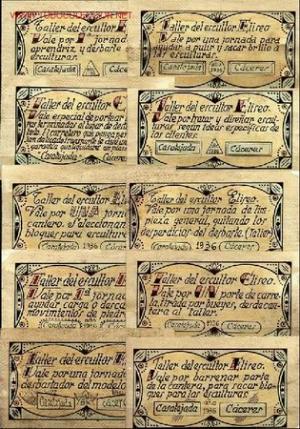 Taller del escultor E
Vale por 1 jornada
aprendiz, y desbaste
esculturas.
Casatejada Cácere
Taller del escultor Eliseo.
Vale por una jornada para
ayudar a pulir y sacar brillo a
esculturas.
Casatejada 1936 Cáceres
Taller del escultor E
Vale especial de portear
Casatejada Cácere
Taller del escultor Eliseo.
Vale por tratar y diseñar escul
turas, según ideas específicas de
los clientes.
Casatejada Cáceres
Taller del escultor E
Vale por una jorna
cantero. Seleccionan
bloques para escultura
Casatejada 1936 Các
Taller del escultor Eliseo.
Vale por una jornada de lim
pieza general, quitando los
desperdicios del desbaste. (Taller
Casatejada 1936 Cáceres
Taller del escultor
Vale por 1ª jornada
ayudar carga o desca
movimientos de piedra
Casatejada Các
Taller del escultor Eliseo.
Vale por un porte de carre
ta, tirada por bueyes, desde can
tera al taller.
Casatejada 1936 Cáceres
Taller del escultor E
Vale por una jornada
desbastador del modelo
Casatejada Cáceres
Taller del escultor Eliseo.
Vale por barrenar parte
de la cantera, para sacar bloq
ues para las esculturas.
Casatejada 1936 Cáceres